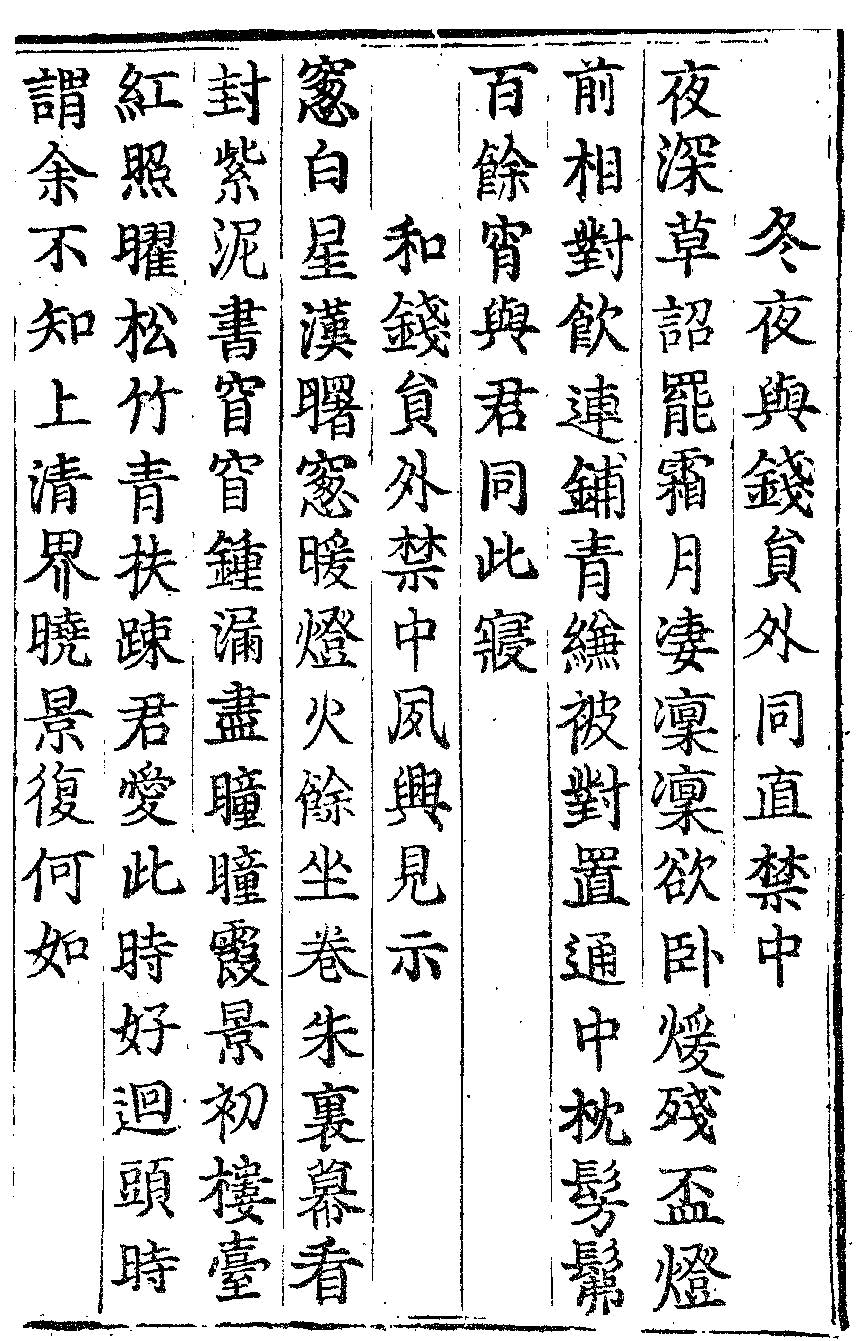 冬夜與錢貟外同直禁中
夜深草詔罷霜月凄凜凜欲卧煖殘盃燈
前相對飲連鋪青縑被對置通中枕髣髴
百餘宵與君同此寢
和錢貟外禁中夙興見示
窻白星漢曙窻暖燈火餘坐卷朱裏幕看
封紫泥書窅窅鍾漏盡曈曈霞景初樓臺
紅照曜松竹青扶踈君愛此時好迴頭時
謂余不知上清界曉景復何如